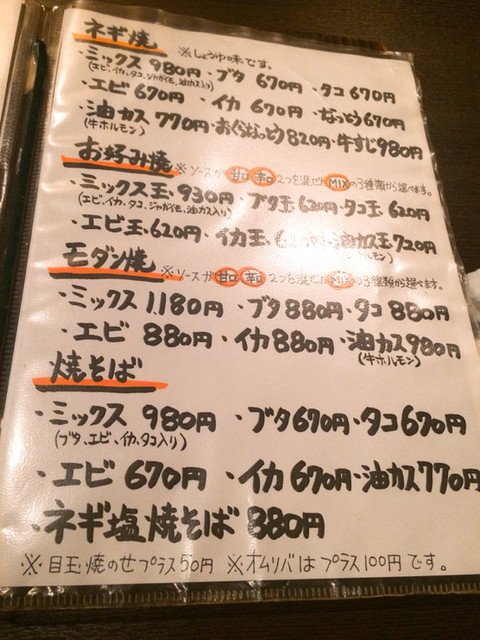 ネギ焼 ※しょうゆ味です。
・ミックス 980円・ブタ 670円・タコ 670円
(エビ、イカ、タコ、ジャガイモ、油カス入り)
・エビ 670円 ・イカ 670円・なっとう 670円
・油カス 770円・おくらなっとう 820円・牛すじ 980円
(牛ホルモン)
お好み焼 ※ソースが 甘口 辛口 2つを混ぜた MIX の3種類から選べます。
・ミックス玉・930円・ブタ玉 620円・タコ玉 620円
(エビ、イカ、タコ、ジャガイモ、油カス入り)
・エビ玉 620円・イカ玉 620円・油カス玉 720円
(牛ホルモン)
モダン焼 ※ソースが 甘口 辛口 2つを混ぜた MIX の3種類から選べます。
・ミックス 1.180円 ・ブタ 880円・タコ 880円
・エビ 880円・イカ 880円・油カス 980円
(牛ホルモン)
焼そば
・ミックス 980円 ・ブタ 670円・タコ 670円
(ブタ、エビ、イカ、タコ入り)
・エビ 670円 ・イカ 670円・油カス 770円
・ネギ塩焼そば 880円
※目玉焼のせプラス50円 ※オムソバはプラス100円です。